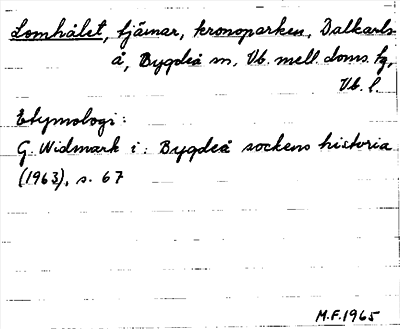 Lomhålet, tjärnar, kronoparken, Dalkarls-
å, Bygdeå sn, Vb. mell. doms. tg,
Vb. l.
Etymologi:
G. Widmark i: Bygdeå sockens historia
(1963), s. 67
M.F. 1965